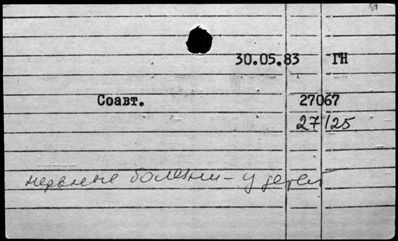 30.05.83 ГН
Соавт. 27067
27/25
нервные болезни - у детей